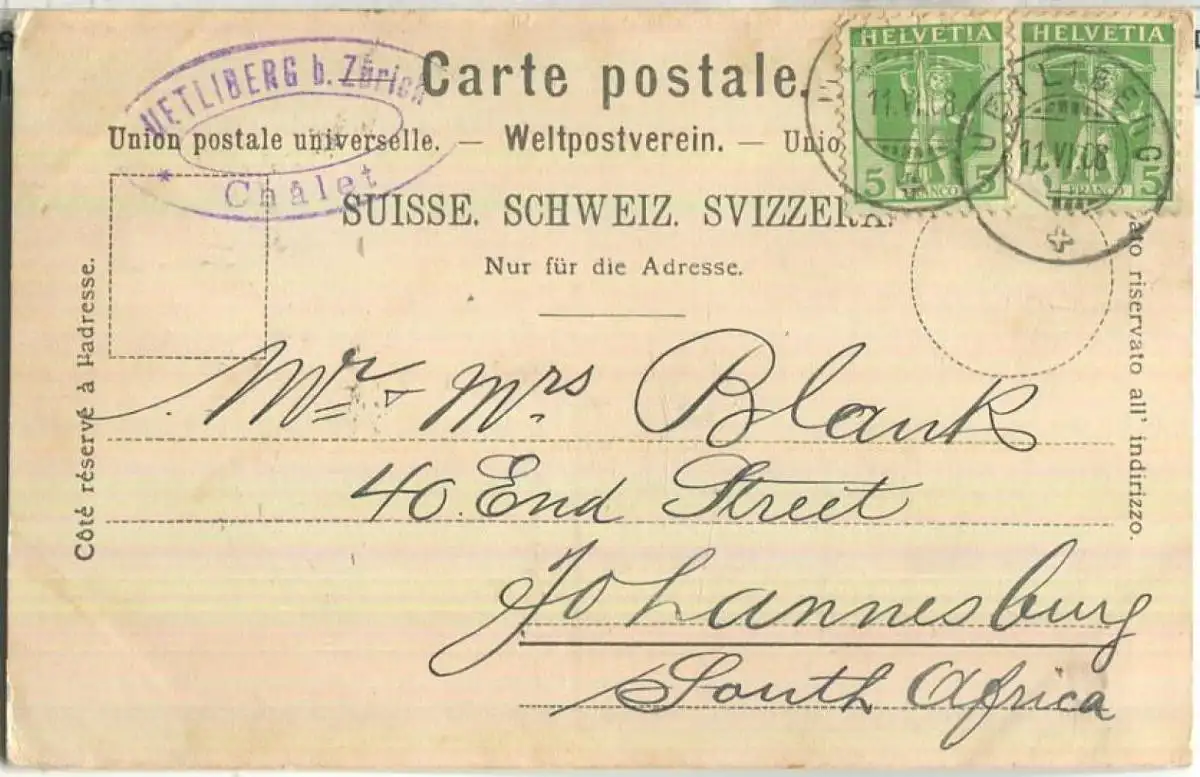 UETLIBERG b. Zürich
* Châlet
Carte postale.
Union postale universelle. — Weltpostverein. — Unio
SUISSE. SCHWEIZ. SVIZZERA.
Nur für die Adresse.
HELVETIA
5 FRANCO 5
HELVETIA
FRANCO 5
11.VI.08
UETLIBERG
11.VI.08
Côté réservé à l'adresse.
ato riservato all' indirizzo.
Mr & Mrs Blank
40. End Street
Johannesburg
South Africa